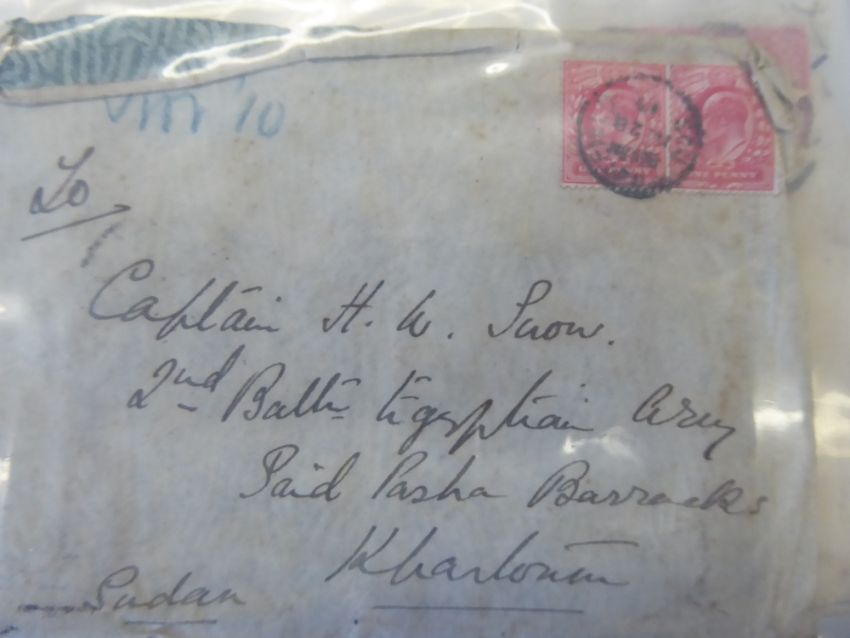 '10
To
Captain H. W. Snow.
2nd Battn Egyptian Army
Said Pasha Barracks
Khartoum
Sudan
ONE PENNY